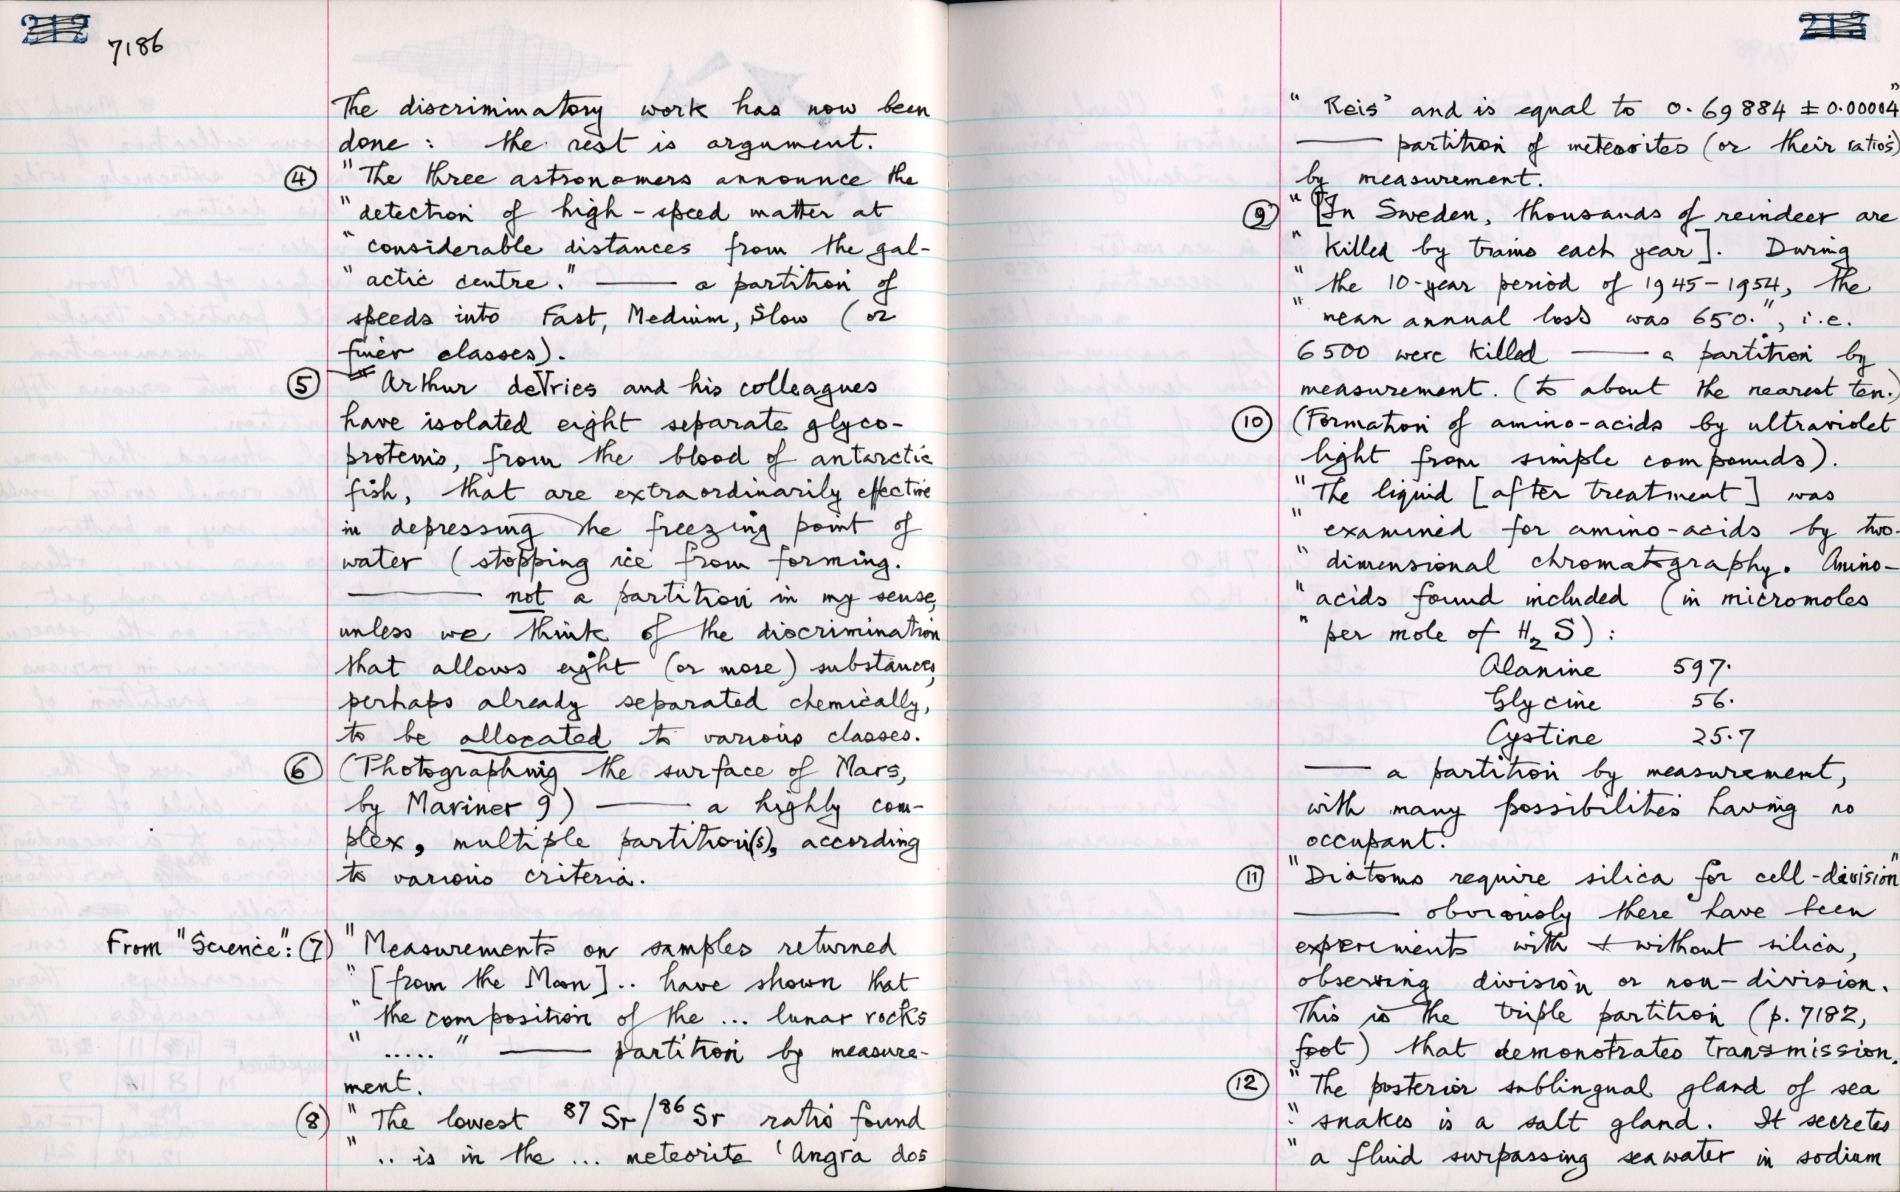 212
7186
The discriminatory work has now been
done : the rest is argument.
④ "The three astronomers announce the
" detection of high-speed matter at
" considerable distances from the gal-
" actic centre." —— a partition of
speeds into Fast, Medium, Slow (or
finer classes).
⑤ " Arthur deVries and his colleagues
have isolated eight separate glyco-
proteins, from the blood of antarctic
fish, that are extraordinarily effective
in depressing the freezing point of
water (stopping ice from forming.
—— not a partition in my sense,
unless we think of the discrimination
that allows eight (or more) substances,
perhaps already separated chemically,
to be allocated to various classes.
⑥ (Photographing the surface of Mars,
by Mariner 9) —— a highly com-
plex, multiple partition(s), according
to various criteria.
From "Science": ⑦ "Measurements on samples returned
" [from the Moon] .. have shown that
" the composition of the ... lunar rocks
" ..... " —— partition by measure-
ment.
⑧ " The lowest ⁸⁷Sr/⁸⁶Sr ratio found
" .. is in the ... meteorite 'Angra dos
213
" Reis' and is equal to 0.69884 ± 0.00004"
—— partition of meteorites (or their ratios)
by measurement.
⑨ " [In Sweden, thousands of reindeer are
" killed by trains each year]. During
" the 10-year period of 1945-1954, the
" mean annual loss was 650.", i.e.
6500 were killed —— a partition by
measurement. (to about the nearest ten.)
⑩ (Formation of amino-acids by ultraviolet
light from simple compounds).
"The liquid [after treatment] was
" examined for amino-acids by two-
" dimensional chromatography. Amino-
" acids found included (in micromoles
" per mole of H₂S) :
Alanine 597.
Glycine 56.
Cystine 25.7
—— a partition by measurement,
with many possibilities having no
occupant.
⑪ "Diatoms require silica for cell-division"
—— obviously there have been
experiments with + without silica,
observing division or non-division.
This is the triple partition (p. 7182,
foot) that demonstrates transmission.
⑫ " The posterior sublingual gland of sea
" snakes is a salt gland. It secretes
" a fluid surpassing seawater in sodium